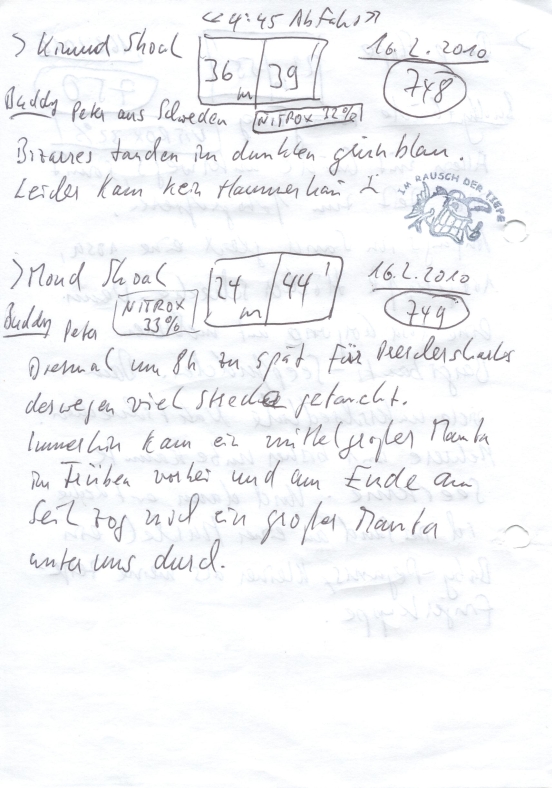 << 4:45 Abfahrt
> Kimud Shoal
36 m 39'
16.2.2010
748
Buddy Peter aus Schweden NITROX 32%
Bizarres tauchen im dunklen grünblau.
Leider kam kein Hammerhai
IM RAUSCH DER TIEFE
> Mond Shoal
24 m 44'
16.2.2010
749
Buddy Peter NITROX 33%
Diesmal um 8h zu spät für
deswegen viel Strecke getaucht.
Immerhin kam ein mittelgroßer Manta
im Trüben vorbei und am Ende am
Seil zog noch ein großer Manta
unter uns durch.